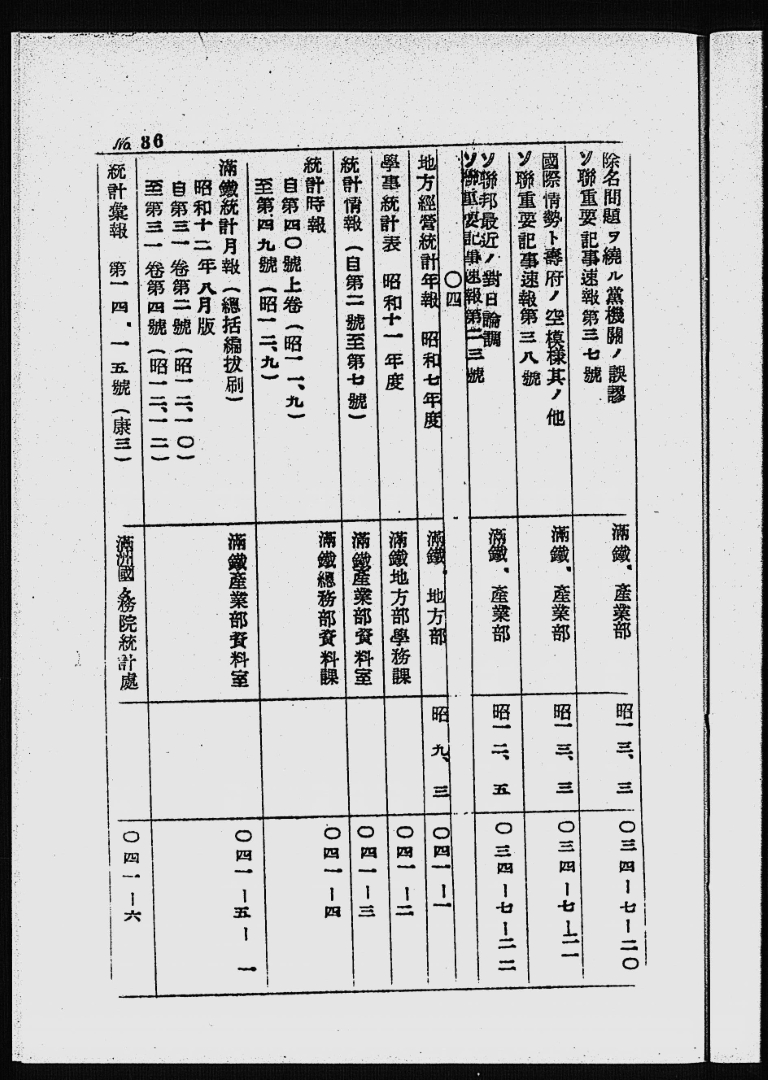 No. 86
除名問題ヲ繞ル黨機關ノ誤謬
ソ聯重要記事速報第三七號
滿鐵、產業部
昭一三、三
〇三四ー七ー二〇
國際情勢ト壽府ノ空模様其ノ他
ソ聯重要記事速報第三八號
滿鐵、產業部
昭一三、三
〇三四ー七ー二一
ソ聯邦最近ノ對日論調
ソ聯重要記事速報第二三號
滿鐵、產業部
昭一二、五
〇三四ー七ー二二
〇四
地方經營統計年報 昭和七年度
滿鐵、地方部
昭九、三
〇四一ー一
學事統計表 昭和十一年度
滿鐵地方部學務課
〇四一ー二
統計情報(自第二號至第七號)
滿鐵產業部資料室
〇四一ー三
統計時報
自第四〇號上卷(昭一一、九)
至第四九號(昭一二、九)
滿鐵總務部資料課
〇四一ー四
滿鐵統計月報(總括編拔刷)
昭和十二年八月版
自第三一卷第二號(昭一二、一〇)
至第三一卷第四號(昭一二、一二)
滿鐵產業部資料室
〇四一ー五ー一
統計彙報 第一四、一五號(康三)
滿洲國々務院統計處
〇四一ー六